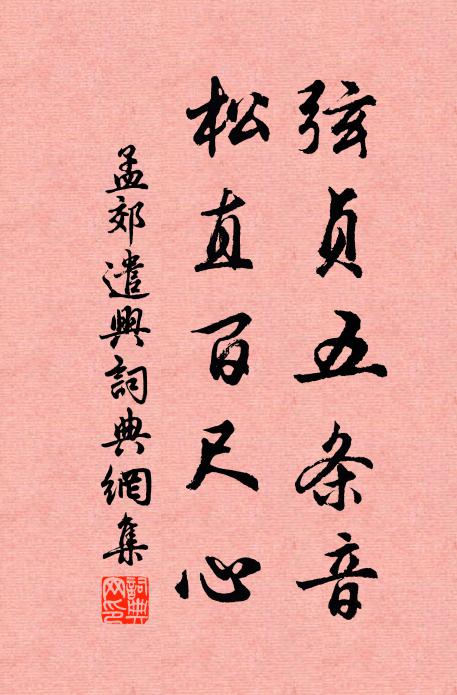 弦贞五条音
松直百尺心
孟郊遣興詞典網集
詞典网印